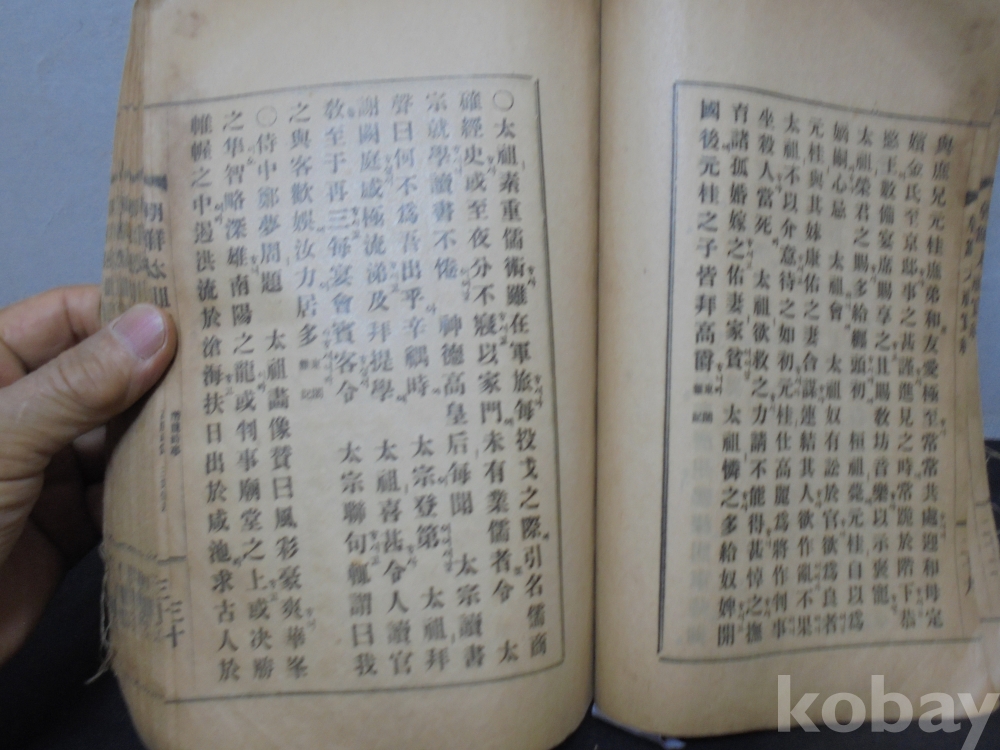 與庶兄元桂庶弟和友愛極至常常共處迎和母定
嬪金氏至京邸事之甚謹進見之時常跪於階下恭
愍王數備宴席賜享之且賜敎坊音樂以示褒寵
太祖榮君之賜多給纏頭初 桓祖薨元桂自以爲
嫡嗣心忌 太祖會 太祖奴有訟於官欲爲良者
元桂與其妹康佑之妻合謀連結其人欲作亂不果
太祖不以介意待之如初元桂仕高麗爲將作判事
坐殺人當死 太祖欲救之力請不能得甚悼之撫
育諸孤婚嫁之佑妻家貧 太祖憐之多給奴婢開
國後元桂之子皆拜高爵
○太祖素重儒術雖在軍旅每投戈之際引名儒商
確經史或至夜分不寢以家門未有業儒者令 太
宗就學讀書不倦 神德高皇后每聞 太宗讀書
聲曰何不爲吾出乎辛禑時 太宗登第 太祖拜
謝闕庭感極流涕及拜提學 太祖喜甚令人讀官
敎至于再三每宴會賓客令 太宗聯句輒謂曰我
之與客歡娛汝力居多
○侍中鄭夢周題 太祖畵像賛曰風彩豪爽華峯
之隼智略深雄南陽之龍或判事廟堂之上或决勝
帷幄之中遏洪流於滄海扶日出於咸池求古人於
三十
kobay